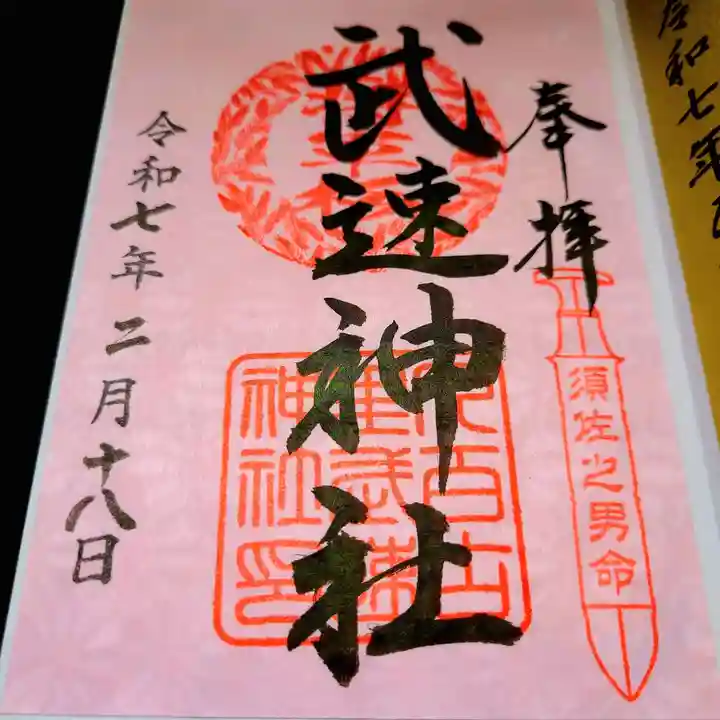 奉拝
武速神社
令和七年二月十八日
須佐之男命
令和七年